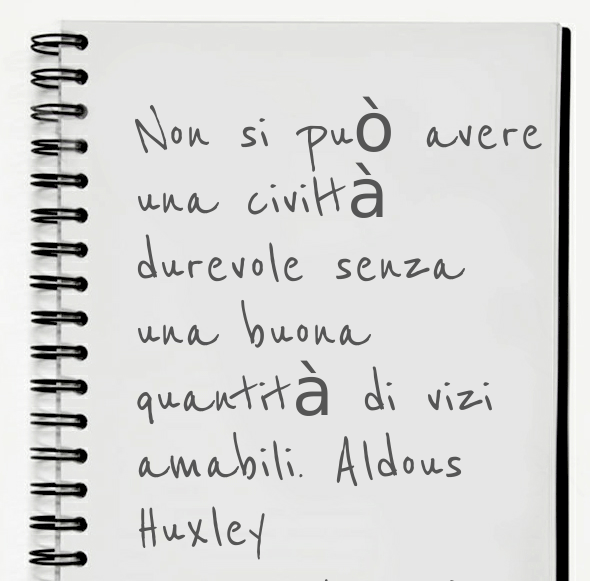 Non si può avere
una civiltà
durevole senza
una buona
quantità di vizi
amabili. Aldous
Huxley